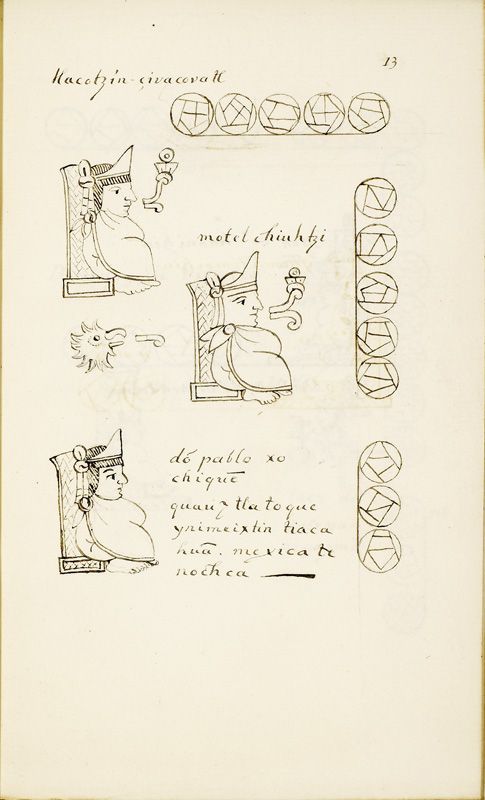 13
tlacotzin-çivacovatl
motelchiuhtzi
dõ pablo xo
chiquẽ
quauhtlatoque
ynimeixtin tiaca
huã. mexica te
nochca